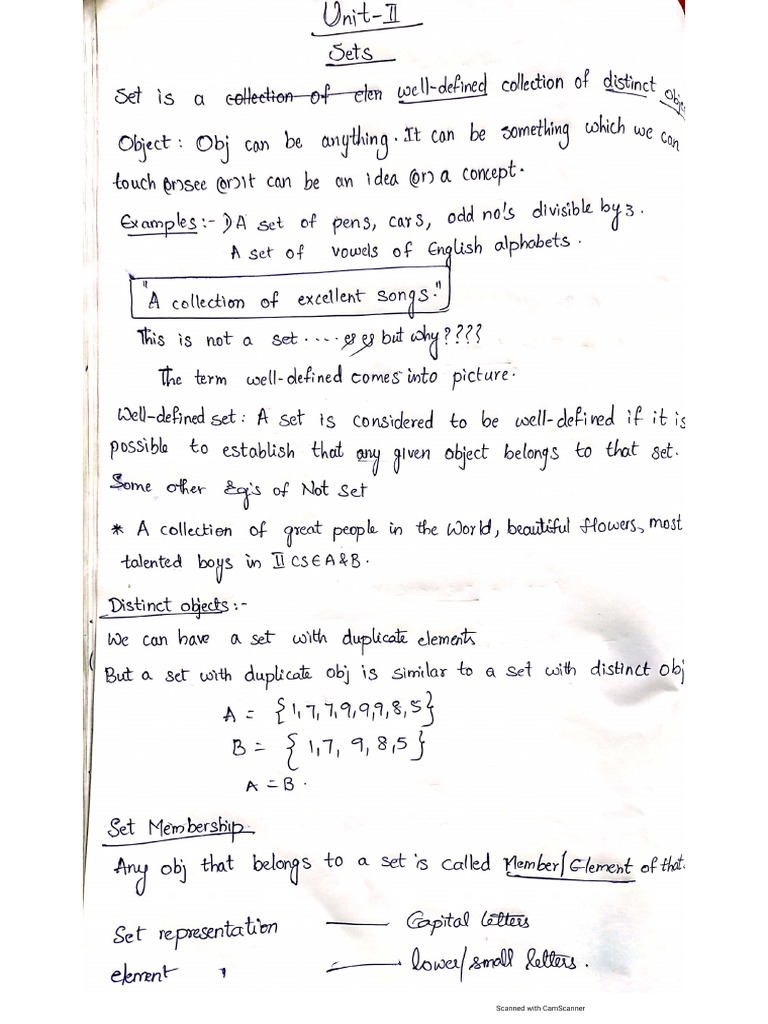 Unit-II
Sets
Set is a collection of elen well-defined collection of distinct obj
Object : Obj can be anything. It can be something which we can
touch (or) see (or) it can be an idea (or) a concept.
Examples :- 1) A set of pens, cars, odd no's divisible by 3.
A set of vowels of English alphabets.
"A collection of excellent songs."
This is not a set .... but why????
The term well-defined comes into picture.
Well-defined set : A set is considered to be well-defined if it is
possible to establish that any given object belongs to that set.
Some other Eg's of Not set
* A collection of great people in the world, beautiful flowers, most
talented boys in II CSE A & B.
Distinct objects :-
We can have a set with duplicate elements
But a set with duplicate obj is similar to a set with distinct obj
A = {1,7,7,9,9,9,8,5}
B = {1,7, 9,8,5}
A = B.
Set Membership
Any obj that belongs to a set is called Member/Element of that.
Set representation —— Capital letters
element " —— lower/small letters.
Scanned with CamScanner